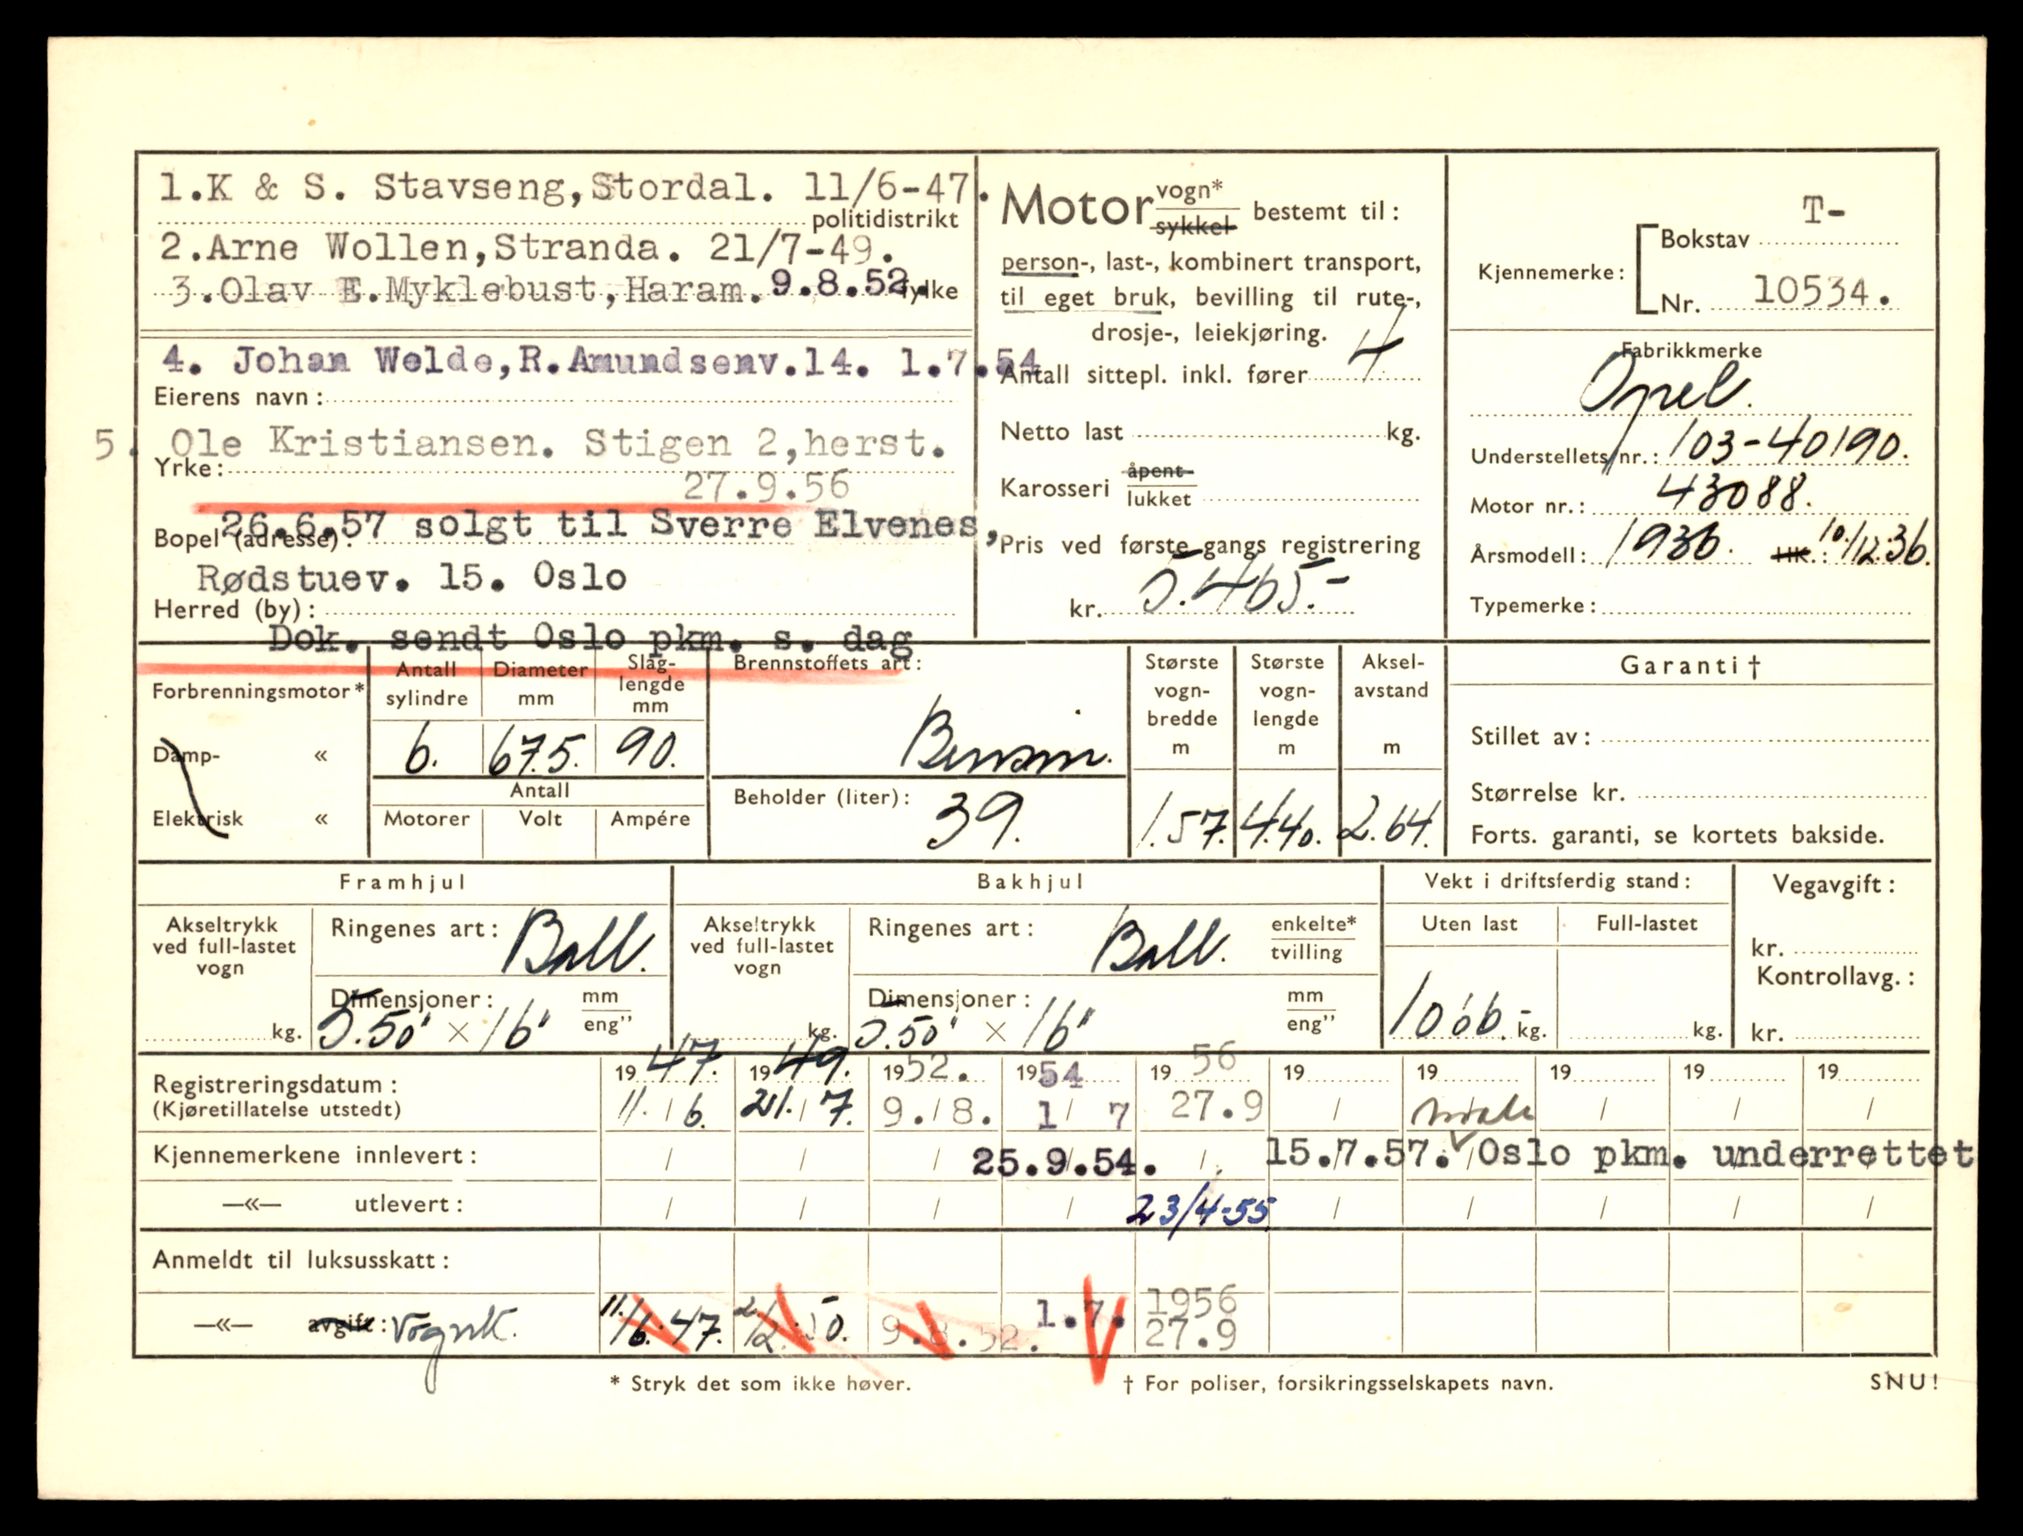 1.K & S. Stavseng,Stordal. 11/6-47.
politidistrikt
2.Arne Wollen,Stranda. 21/7-49.
3.Olav E.Myklebust,Haram.9.8.52.
fylke
4. Johan Welde,R.Amundsenv.14. 1.7.54
Eierens navn:
5. Ole Kristiansen. Stigen 2,herst.
Yrke:
27.9.56
26.6.57 solgt til Sverre Elvenes,
Bopel (adresse):
Rødstuev. 15. Oslo
Herred (by):
Dok. sendt Oslo pkm. s. dag
Motor vogn* sykkel bestemt til:
person-, last-, kombinert transport,
til eget bruk, bevilling til rute-,
drosje-, leiekjøring.
Antall sittepl. inkl. fører 4
Netto last kg.
Karosseri åpent lukket
Pris ved første gangs registrering
kr. 5.465.-
Kjennemerke: Bokstav T-
Nr. 10534.
Fabrikkmerke
Opel.
Understellets nr.: 103-40190.
Motor nr.: 43088.
Årsmodell: 1936. HK.: 10/12.36.
Typemerke:
Forbrenningsmotor*
Antall sylindre
Diameter mm
Slag-lengde mm
6. 67.5. 90.
Damp- «
Elektrisk «
Antall
Motorer Volt Ampére
Brennstoffets art:
Bensin.
Beholder (liter): 39.
Største vogn-bredde m
1.57.
Største vogn-lengde m
4.40.
Aksel-avstand m
2.64.
Garanti†
Stillet av:
Størrelse kr.
Forts. garanti, se kortets bakside.
Framhjul
Akseltrykk ved full-lastet vogn
kg.
Ringenes art: Ball.
Dimensjoner: mm eng”
5.50" × 16"
Bakhjul
Akseltrykk ved full-lastet vogn
kg.
Ringenes art: Ball. enkelte* tvilling
Dimensjoner: mm eng”
5.50" × 16"
Vekt i driftsferdig stand:
Uten last Full-lastet
kg. kg.
Vegavgift:
kr.
Kontrollavg.:
kr.
Registreringsdatum: 19 47. 19 49. 19 52. 19 54 19 56 19 19 19 19 19
(Kjøretillatelse utstedt) 11. / 6. 21. / 7. 9. / 8. 1 / 7 27.9 / / / / /
Kjennemerkene innlevert: / / / 25.9.54. / 15.7.57. Oslo pkm. underrettet
—«— utlevert: / / / / 23/4-55 / / / / /
Anmeldt til luksusskatt:
—«— avgift: Vognk. 11./6. 47. 2/2. 50. 9.8.52. 1.7. 1956
27.9
* Stryk det som ikke høver.
† For poliser, forsikringsselskapets navn.
SNU!